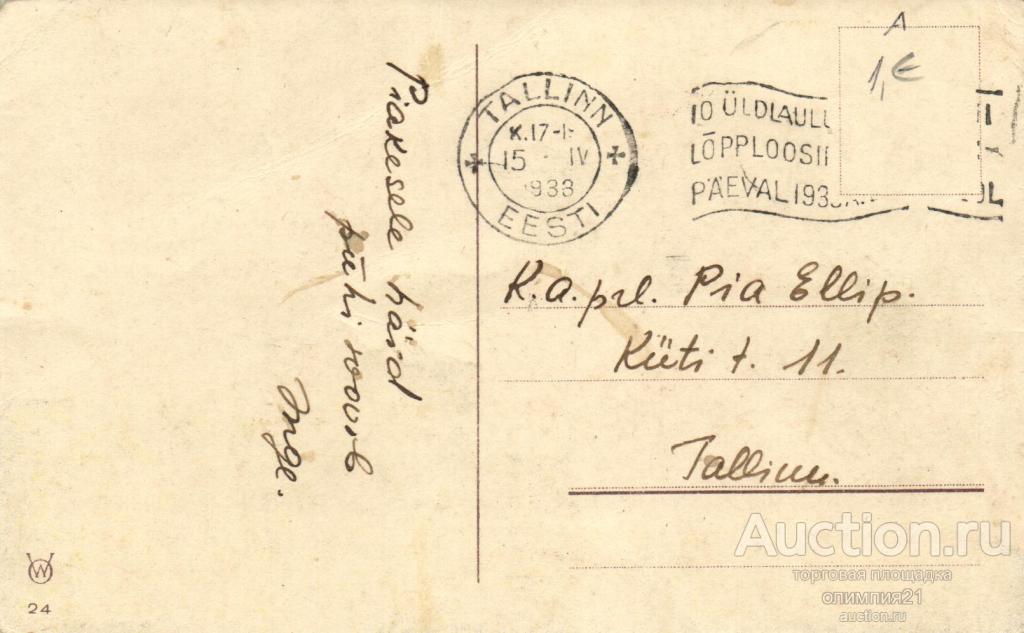 Piakesele häid
pühi soovib
Inge.
TALLINN
K.17-18
15 IV
1933
EESTI
10 ÜLDLAULU
LÕPPLOOSI
PÄEVAL 1933
A
1,€
K.a.prl. Pia Ellip.
Küti t. 11.
Tallinn.
W
24
Auction.ru
торговая площадка
олимпия21
auction.ru